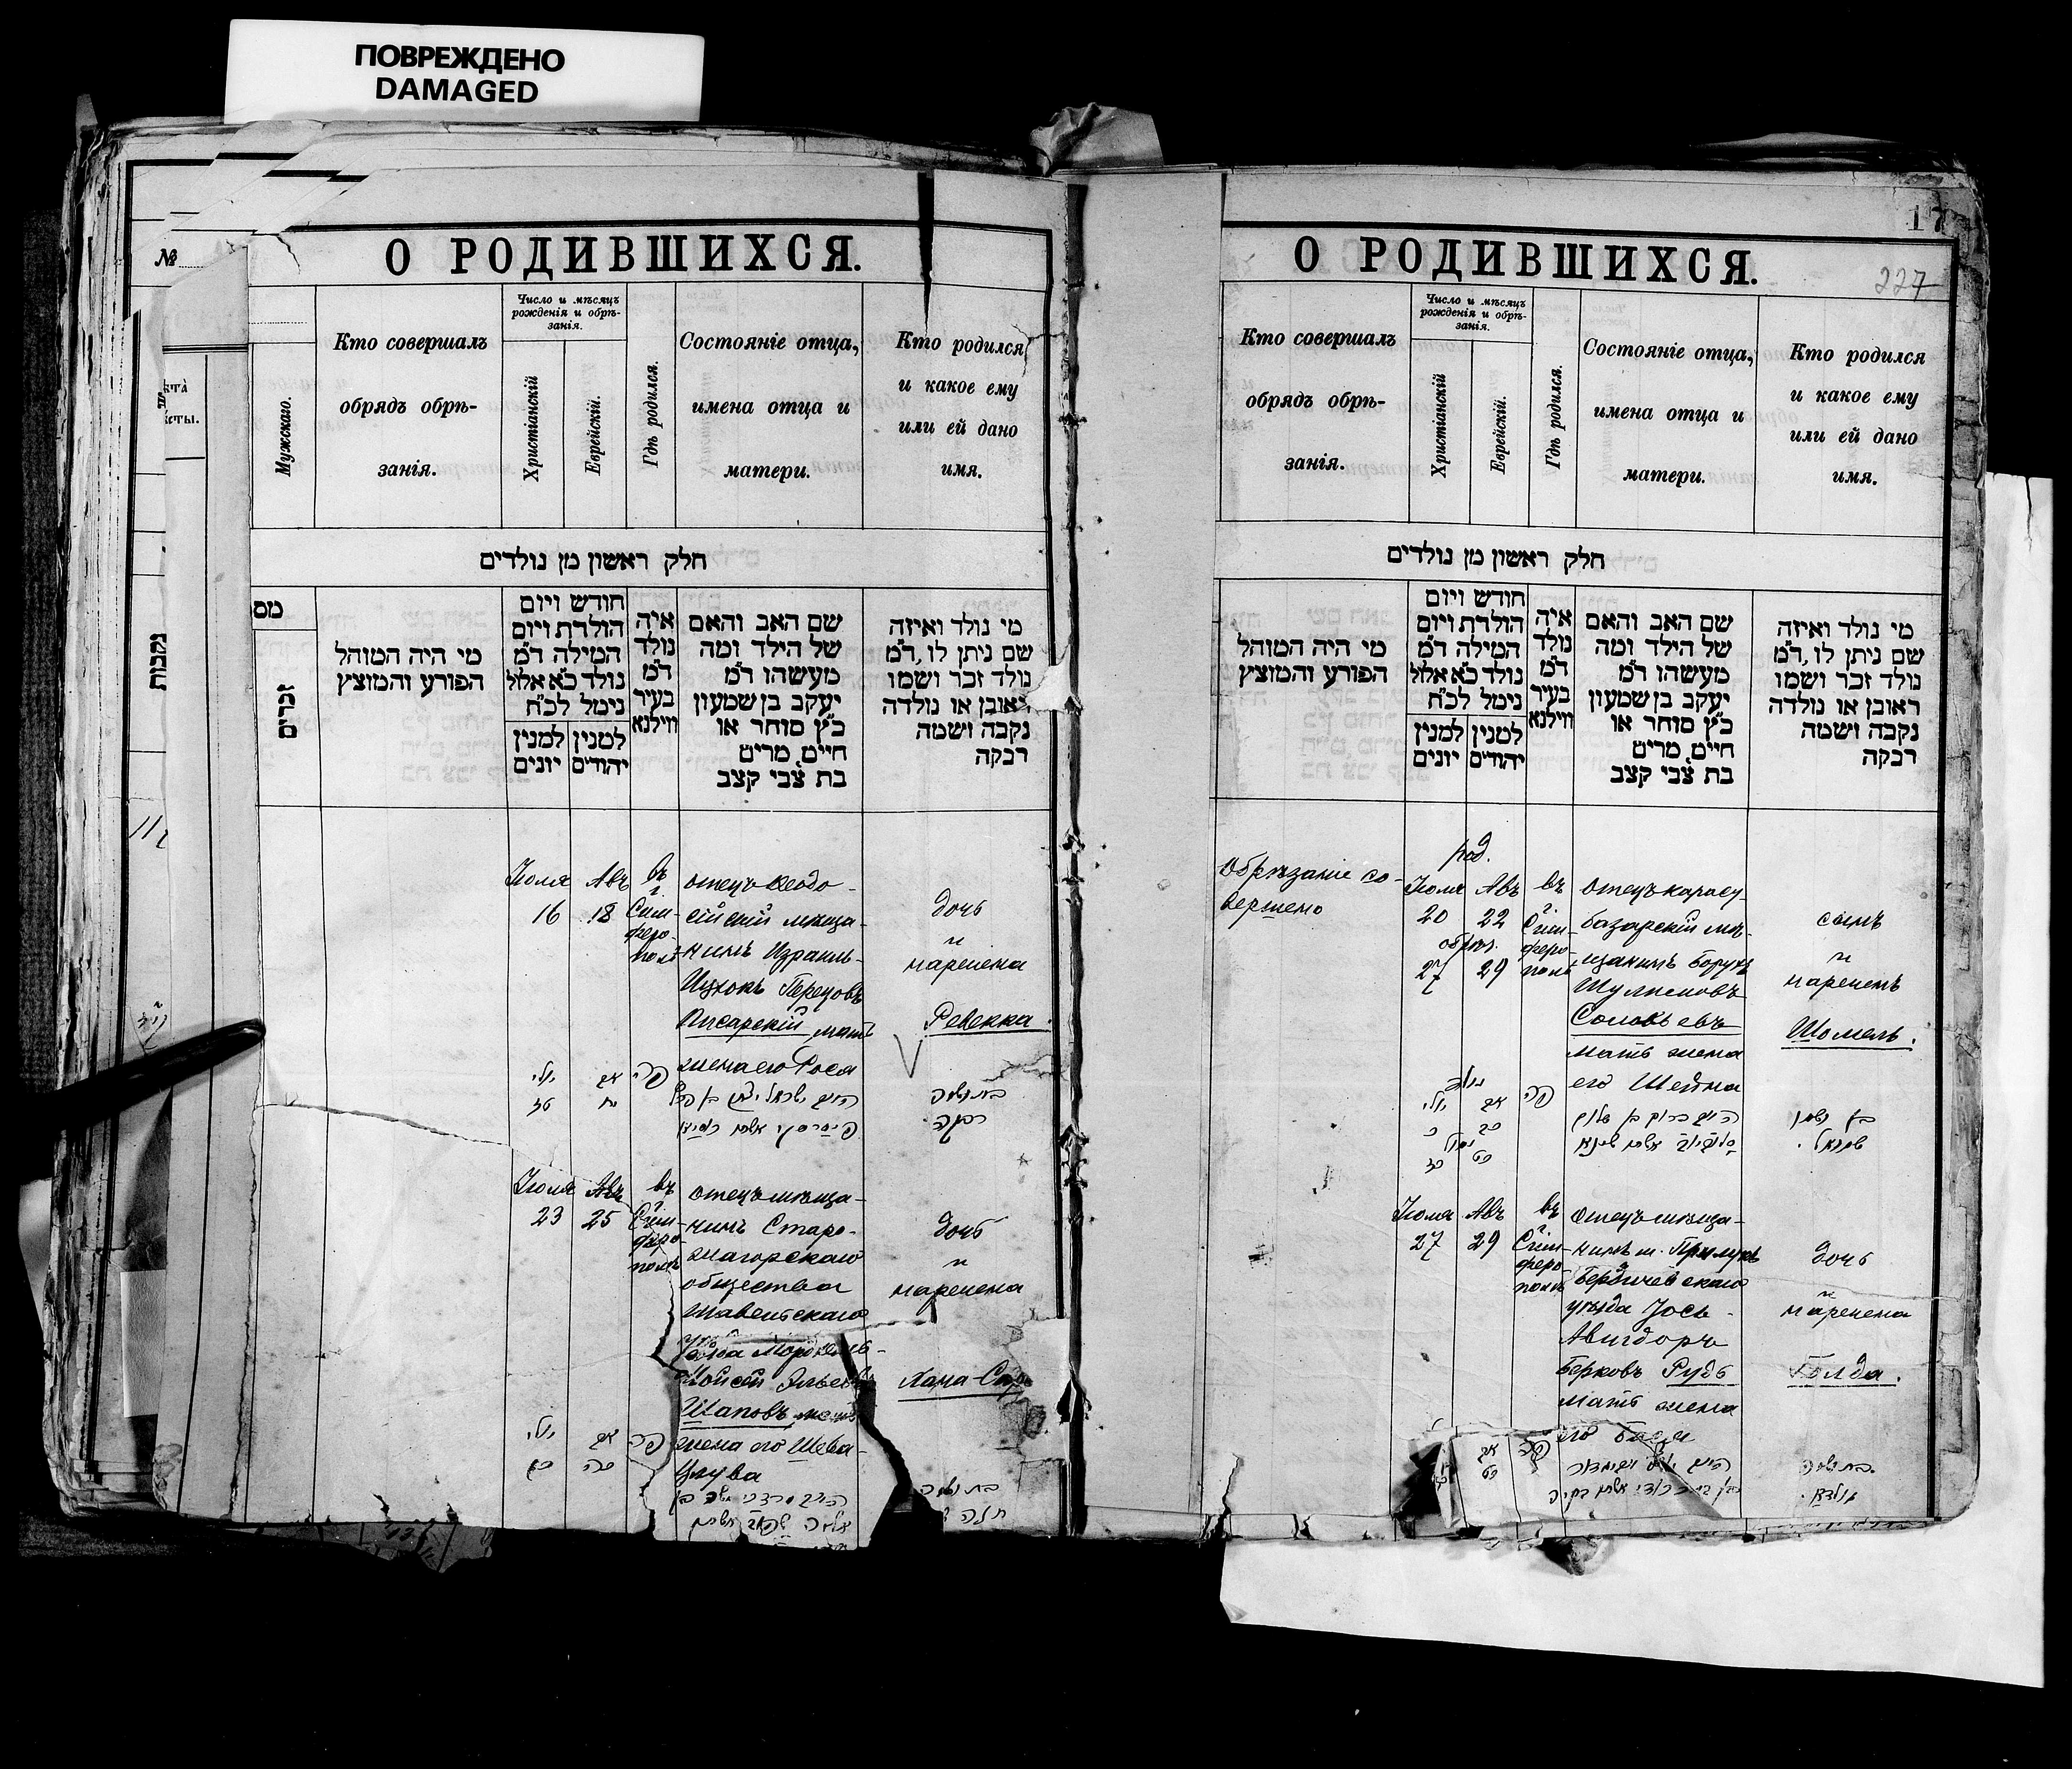 ПОВРЕЖДЕНО
DAMAGED
№
О РОДИВШИХСЯ.
Мужскаго.
Кто совершалъ
обрядъ обрѣ-
занія.
Число и мѣсяцъ
рожденія и обрѣ-
занія.
Христіанскій
Еврейскій.
Гдѣ родился.
Состояніе отца,
имена отца и
матери.
Кто родился
и какое ему
или ей дано
имя.
חלק ראשון מן נולדים
נקבות
מס
זכרים
מי היה המוהל
הפורע והמוצץ
חודש ויום
הולדת ויום
המילה ד״מ
נולד כ״א אלול
נימל לכ״ח
למנין יהודים
למנין יונים
איה
נולד
ד״מ
בעיר
ווילנא
שם האב והאם
של הילד ומה
מעשהו ד״מ
יעקב בן שמעון
כ״ץ סוחר או
חייט, מרים
בת צבי קצב
מי נולד ואיזה
שם ניתן לו, ד״מ
נולד זכר ושמו
ראובן או נולדה
נקבה ושמה
רבקה
Іюля
16
Авъ
18
въ
г.
Сим-
феро-
полѣ
отецъ Ѳеодо-
сійскій мѣща-
нинъ Израиль-
Ицхокъ Перецовъ
Писарскій, мать
жена его Рося
дочь
и
наречена
Ревекка.
יולי
טז
אב
יח
פה
בת ושמה
רבקה.
Іюля
23
Авъ
25
въ
г.
Сим-
феро-
полѣ
отецъ мѣща-
нинъ Старо-
жагорскаго
общества
Шавельскаго
Шаповъ, мать
жена его Шева-
дочь
и
наречена
Хана-С
יולי
כג
אב
כה
פה
בת ושמה
17
227
О РОДИВШИХСЯ.
Кто совершалъ
обрядъ обрѣ-
занія.
Число и мѣсяцъ
рожденія и обрѣ-
занія.
Христіанскій
Еврейскій.
Гдѣ родился.
Состояніе отца,
имена отца и
матери.
Кто родился
и какое ему
или ей дано
имя.
חלק ראשון מן נולדים
מי היה המוהל
הפורע והמוצץ
חודש ויום
הולדת ויום
המילה ד״מ
נולד כ״א אלול
נימל לכ״ח
למנין יהודים
למנין יונים
איה
נולד
ד״מ
בעיר
ווילנא
שם האב והאם
של הילד ומה
מעשהו ד״מ
יעקב בן שמעון
כ״ץ סוחר או
חייט, מרים
בת צבי קצב
מי נולד ואיזה
שם ניתן לו, ד״מ
נולד זכר ושמו
ראובן או נולדה
נקבה ושמה
רבקה
Обрѣзаніе со-
вершено
род.
Іюля
20
обрѣз.
27
Авъ
22
29
въ
г.
Сим-
феро-
полѣ
отецъ карасу-
базарскій мѣ-
щанинъ Борухъ
Шулимовъ
Соловьевъ
мать жена
его Шейна
сынъ
и
нареченъ
Шомель.
נולד
יולי
כ
אב
כב
נימול
כז
כט
פה
בן ושמו
שמואל.
Іюля
27
Авъ
29
въ
г.
Сим-
феро-
полѣ
отецъ мѣща-
нинъ м. Прилукъ
Бердичевскаго
уѣзда Іось-
Авигдоръ
Берковъ Рудь
мать жена
его Бася
дочь
и
наречена
Голда.
אב
כט
פה
בת ושמה
גולדא.